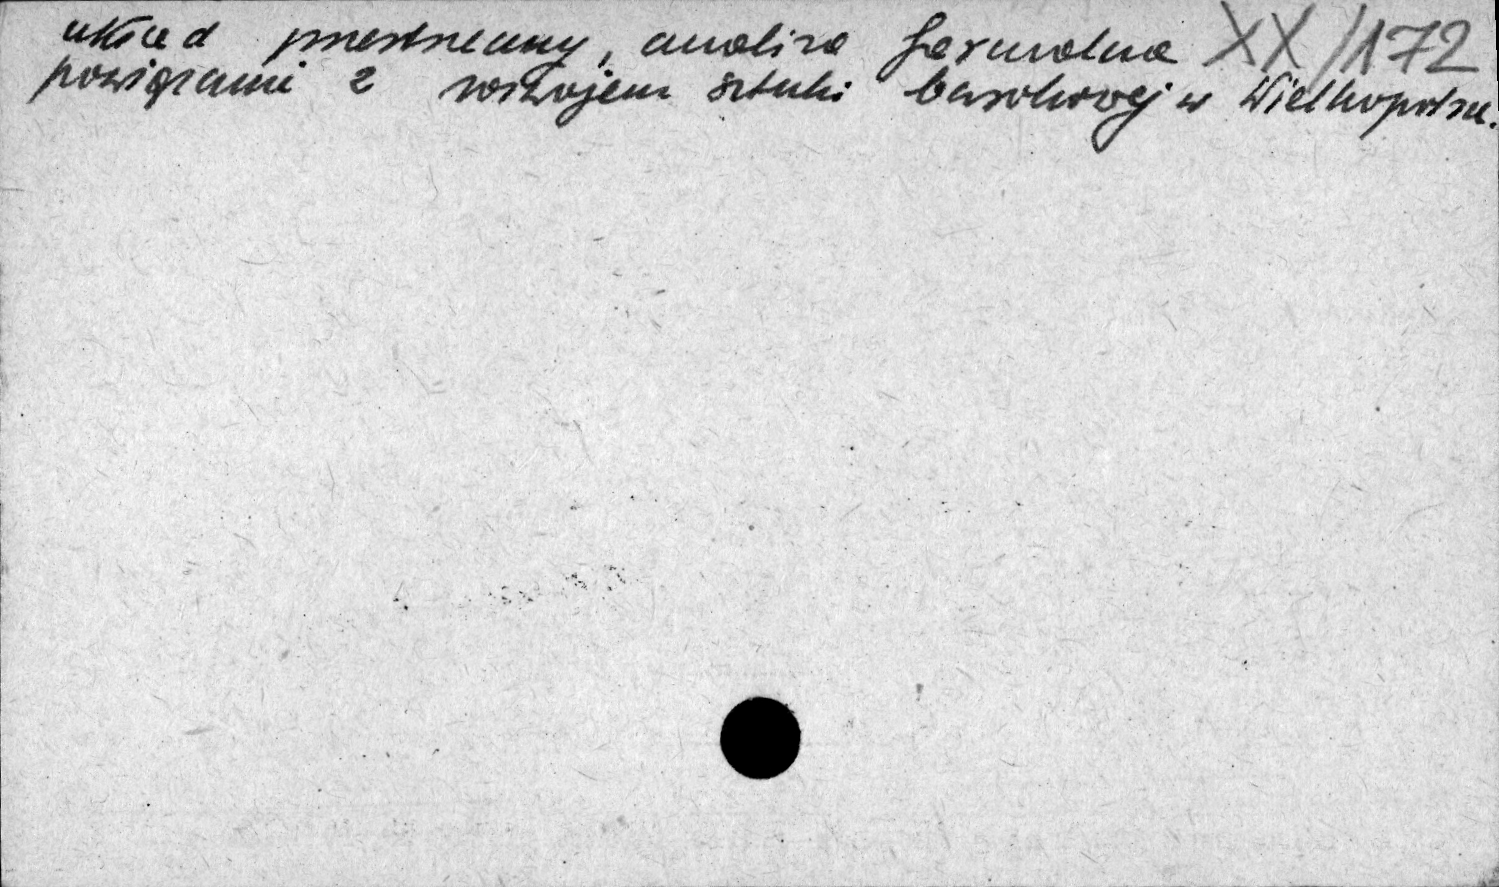 układ przestrzenny, analiza formalna XX/172
powiązania z rozwojem sztuki barokowej w Wielkopolsce.